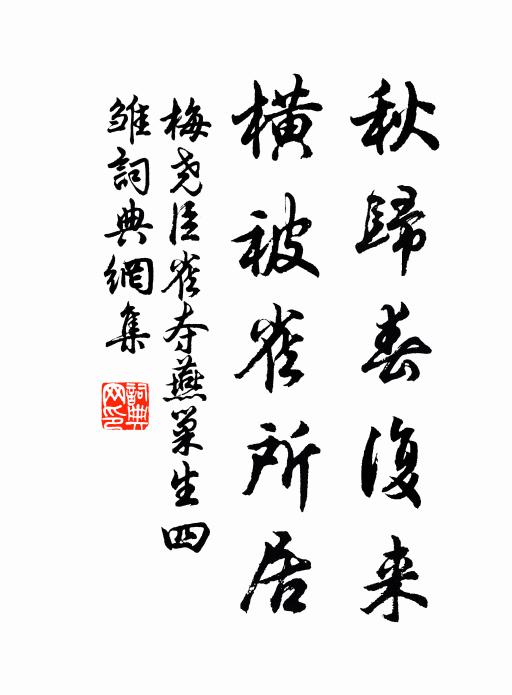 秋歸春復来
橫被雀所居
梅尧臣雀夺燕巢生四
雏詞典網集
詞典
网印